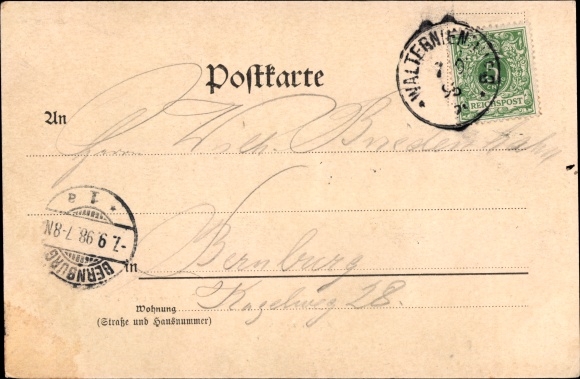 WALTERNIENBURG
7 9 98
5
REICHSPOST
Postkarte
An Herrn Wilh.
BERNBURG
-7.9.98.7-8N.
* 1 a
in Bernburg
Wohnung
(Straße und Hausnummer)
28.